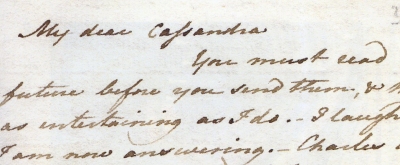 My dear Cassandra
You must read
future before you send them, &
as entertaining as I do. – I laugh
I am now answering. – Charles